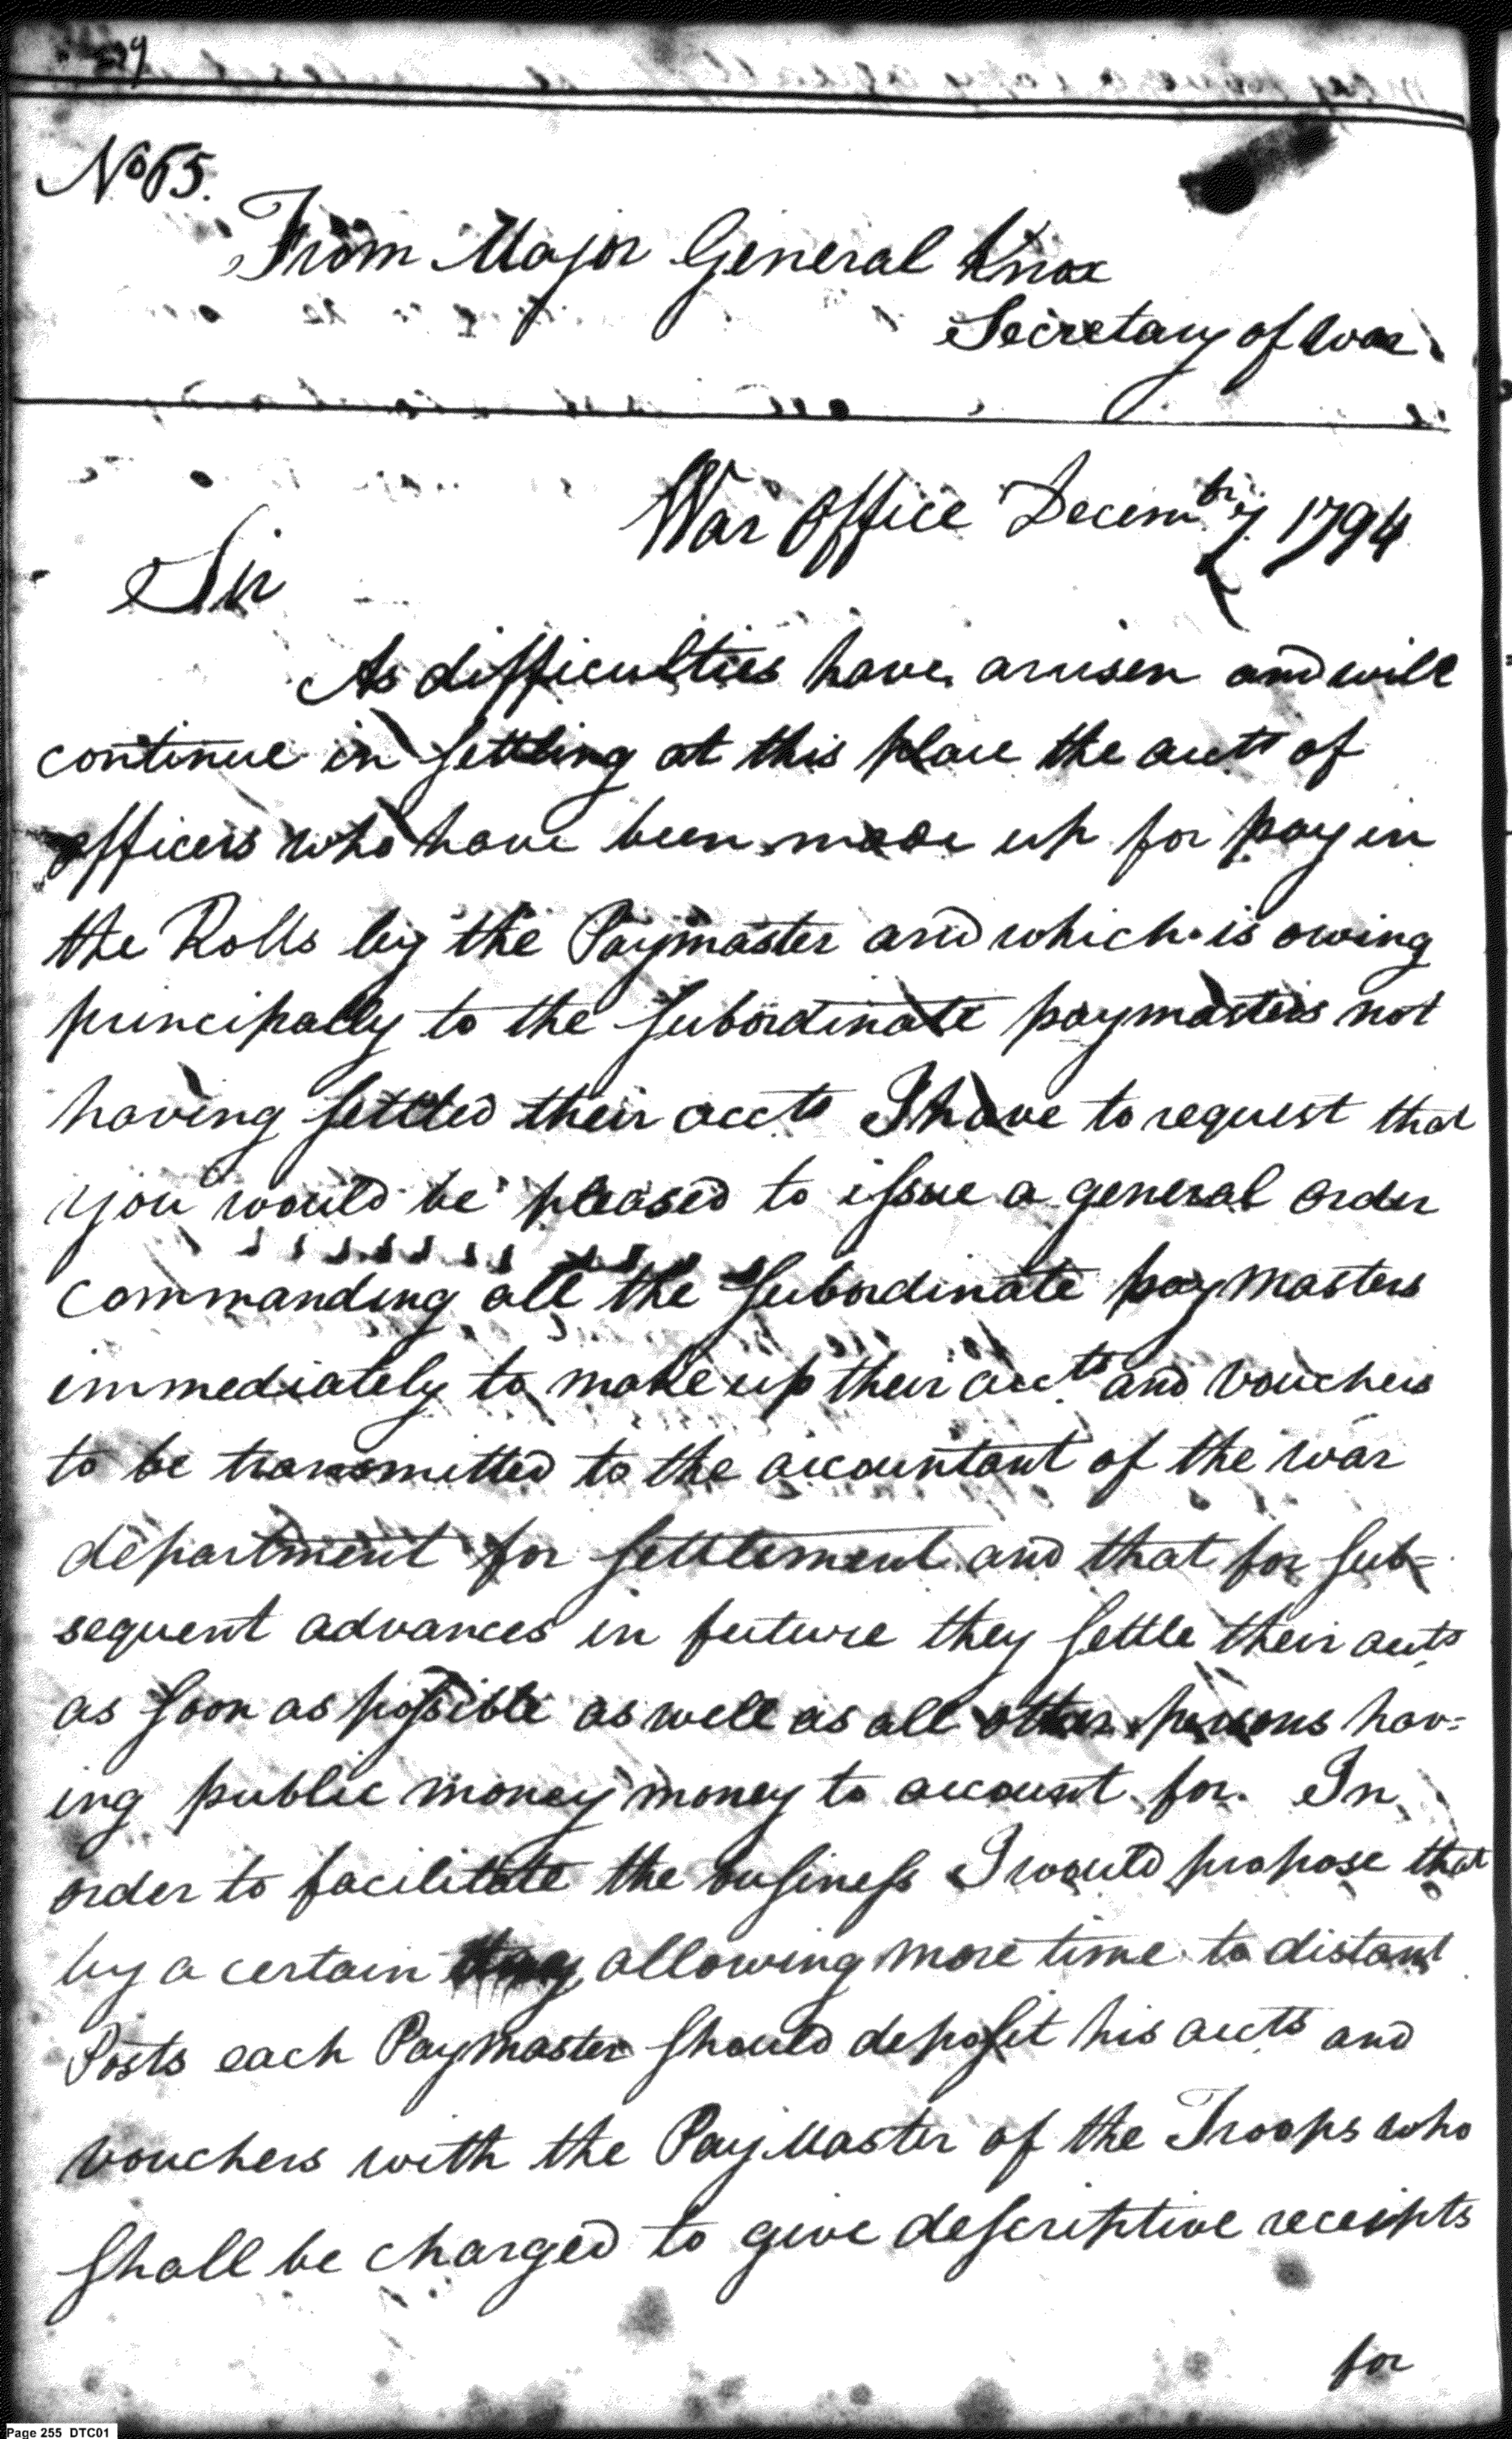 No 65.
From Major General Knox
Secretary of War.
War Office Decembr. 7. 1794
Sir
As difficulties have arrisen and will
continue in settling at this place the accts of
officers who have been made up for pay in
the Rolls by the Paymaster and which is owing
principally to the subordinate paymasters not
having settled their accts I have to request that
you would be pleased to issue a general order
commanding all the subordinate paymasters
immediately to make up their accts and vouchers
to be transmitted to the accountant of the war
department for settlement and that for sub=
sequent advances in future they settle their accts
as soon as possible as well as all other persons hav=
ing public money money to account for. In
order to facilitate the business I would propose that
by a certain day allowing more time to distant
Posts each Paymaster should deposit his accts and
vouchers with the PayMaster of the Troops who
shall be charged to give descriptive receipts
for
Page 255 DTC01